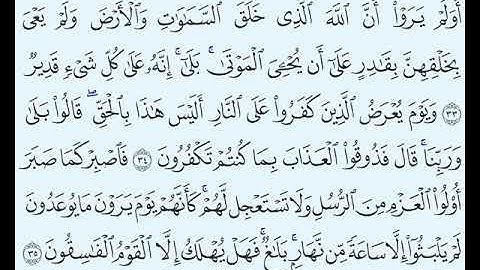 أَوَلَمْ يَرَوْا۟ أَنَّ ٱللَّهَ ٱلَّذِى خَلَقَ ٱلسَّمَٰوَٰتِ وَٱلْأَرْضَ وَلَمْ يَعْىَ
بِخَلْقِهِنَّ بِقَٰدِرٍ عَلَىٰٓ أَن يُحْۦِىَ ٱلْمَوْتَىٰ ۚ بَلَىٰٓ ۚ إِنَّهُۥ عَلَىٰ كُلِّ شَىْءٍ قَدِيرٌ
۝٣٣ وَيَوْمَ يُعْرَضُ ٱلَّذِينَ كَفَرُوا۟ عَلَى ٱلنَّارِ أَلَيْسَ هَٰذَا بِٱلْحَقِّ ۖ قَالُوا۟ بَلَىٰ
وَرَبِّنَا ۚ قَالَ فَذُوقُوا۟ ٱلْعَذَابَ بِمَا كُنتُمْ تَكْفُرُونَ ۝٣٤ فَٱصْبِرْ كَمَا صَبَرَ
أُو۟لُوا۟ ٱلْعَزْمِ مِنَ ٱلرُّسُلِ وَلَا تَسْتَعْجِل لَّهُمْ ۚ كَأَنَّهُمْ يَوْمَ يَرَوْنَ مَا يُوعَدُونَ
لَمْ يَلْبَثُوٓا۟ إِلَّا سَاعَةً مِّن نَّهَارٍۭ ۚ بَلَٰغٌ ۚ فَهَلْ يُهْلَكُ إِلَّا ٱلْقَوْمُ ٱلْفَٰسِقُونَ ۝٣٥